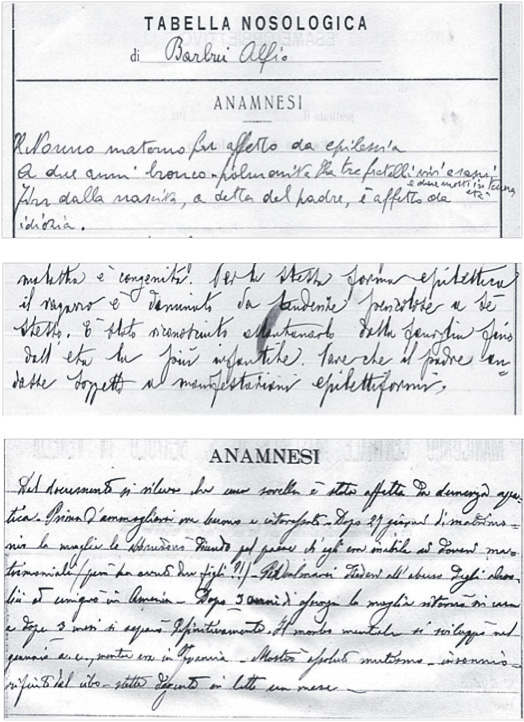 TABELLA NOSOLOGICA
di Barbui Alfio
ANAMNESI
Il Nonno materno fu affetto da epilessia
A due anni bronco-polmonite Ha tre fratelli vivi e sani
e due morti in tenera
età
Fin dalla nascita, a detta del padre, è affetto da
idiozia.
malattia è congenita. Per la stessa forma epilettica
il ragazzo è dominato da tendenze pericolose a sè
stesso. È stato riconosciuto allontanarlo dalla famiglia fino
dall'età la più infantile. Pare che il padre an-
dasse soggetto a manifestazioni epilettiformi.
ANAMNESI
Dal documento si rileva che una sorella è stata affetta da demenza apa-
tica. Prima d'ammogliarsi era buono e interessato. Dopo 27 giorni di matrimo-
nio la moglie lo abbandonò dicendo pel paese ch'egli era inabile ai doveri ma-
trimoniali (però ha avuto due figli?!) - diedesi all'abuso degli alcoo-
lici ed emigrò in America - Dopo 3 anni di la moglie ritornò in casa
e dopo 3 mesi si separò definitivamente. Il morbo mentale si sviluppò nel
gennaio a. c., mentre era in Francia - Mostrò assoluto mutismo - insonnia
rifiuto del cibo - stette degente in letto un mese -